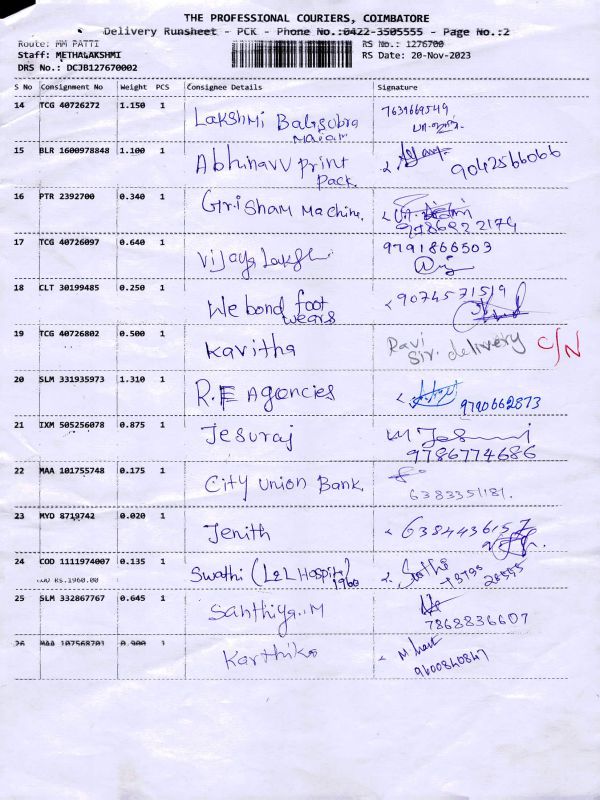 THE PROFESSIONAL COURIERS, COIMBATORE
Delivery Runsheet - PCK - Phone No.:0422-3505555 - Page No.:2
Route: MM PATTI
RS No.: 1276700
Staff: METHALAKSHMI
RS Date: 20-Nov-2023
DRS No.: DCJB127670002
S No Consignment No Weight PCS Consignee Details Signature
14 TCG 40726272 1.150 1 Lakshmi 7639669549
15 BLR 1600978848 1.100 1 Abhinavv print 9042566066
pack
16 PTR 2392700 0.340 1 Grisham Machine.
17 TCG 40726097 0.640 1 9791866503
18 CLT 30199485 0.250 1 We bond foot 9074571519
wears
19 TCG 40726802 0.500 1 Kavitha Ravi C/N
Sir. delivery
20 SLM 331935973 1.310 1 R.F Agencies
9790662873
21 IXM 505256078 0.875 1 Jesuraj
9786774686
22 MAA 101755748 0.175 1 City Union Bank.
6383351181.
23 MYD 8719742 0.020 1 Jenith
24 COD 1111974007 0.135 1 Swathi (L&L Hospital)
COD RS.1960.00 1960
25 SLM 332867767 0.645 1 Santhiya.M
7868836607
26 MAA 107568701 0.900 1 Karthika
9600840847